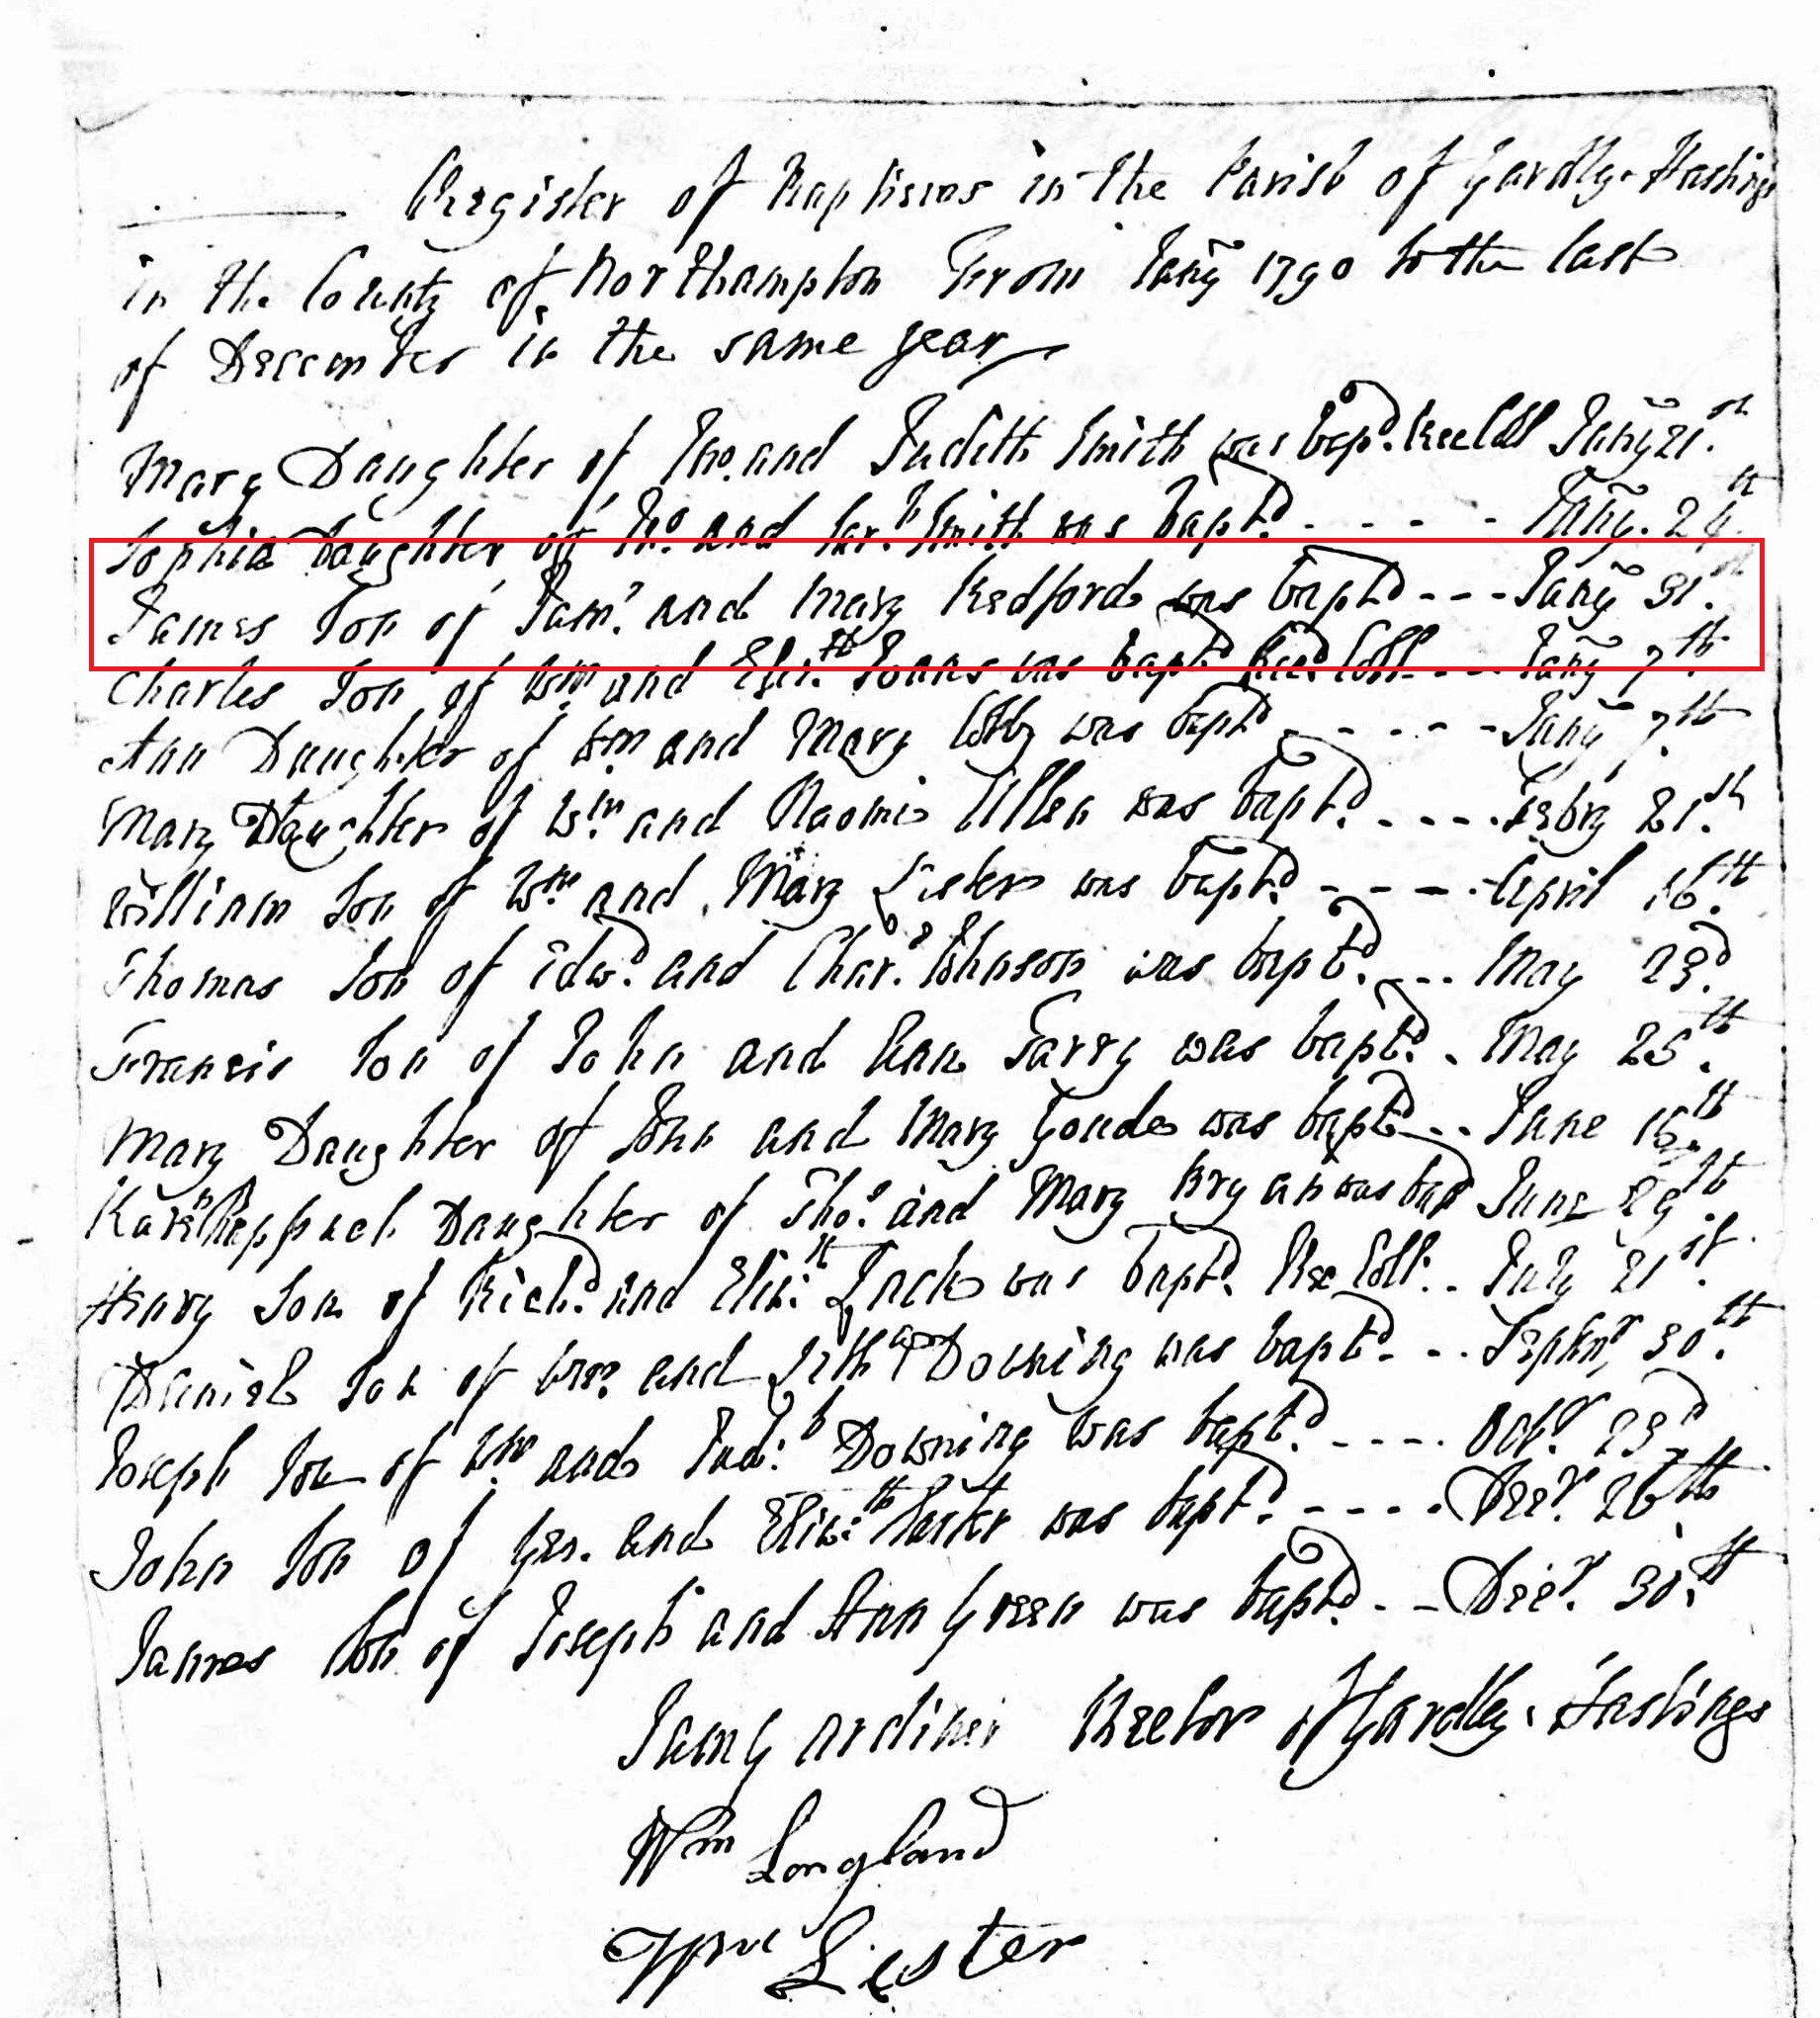 Register of Baptisms in the Parish of Yardly-Hastings
in the County of Northampton From Jany 1790 to the last
of December in the same year
Mary Daughter of Jno. and Judith Smith was bapd. Jany 21st
Sophia Daughter of Jno. and Sarh Smith was bapt.d - - - - Jany. 24th
James Son of Jams. and Mary Redford was bapt.d - - - Jany 31st
Charles Son of Wm and Eliz.th was bapt.d Rec.d Coll. - - - Jany 7th
Ann Daughter of Wm and Mary was bapt.d - - - - - Jany 7th
Mary Daughter of Wm and Naomi Allen was bapt.d - - - - Febry 21st
William Son of Wm and Mary Lester was bapt.d - - - - April 16th
Thomas Son of Edw.d and Char.e Johnson was bapt.d - - - May 23.d
Francis Son of John and Ann Farry was bapt.d - May 25th
Mary Daughter of John and Mary Goude was bapt.d - - June
Daughter of Tho.s and Mary Bryan was bap.d June 29th
Henry Son of Rich.d and Eliz.th Lack was bapt.d Rec Coll. - - July 21st.
Daniel Son of and Downing was bapt.d - - - Septmr 30th
Joseph Son of Wm and Jud.h Downing was bapt.d - - - - Octr. 23d
John Son of Geo. and Eliz.th was bapt.d - - - - Decr. 26th
James Son of Joseph and Ann Green was bapt.d - - Decr. 30th
Jam Gardiner Rector of Yardley-Hastings
Wm Longland
Wm Lester